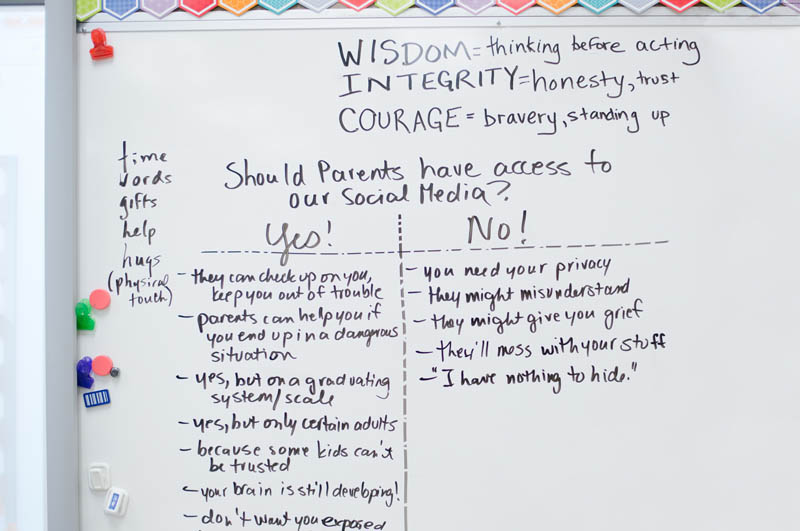 WISDOM = thinking before acting
INTEGRITY = honesty, trust
COURAGE = bravery, standing up
time
words
gifts
help
hugs
(physical
touch)
Should Parents have access to
our Social Media?
Yes!
- they can check up on you,
keep you out of trouble
- parents can help you if
you end up in a dangerous
situation
- yes, but on a graduating
system/scale
- yes, but only certain adults
- because some kids can't
be trusted
- your brain is still developing!
- don't want you exposed
No!
- you need your privacy
- they might misunderstand
- they might give you grief
- they'll mess with your stuff
- "I have nothing to hide."